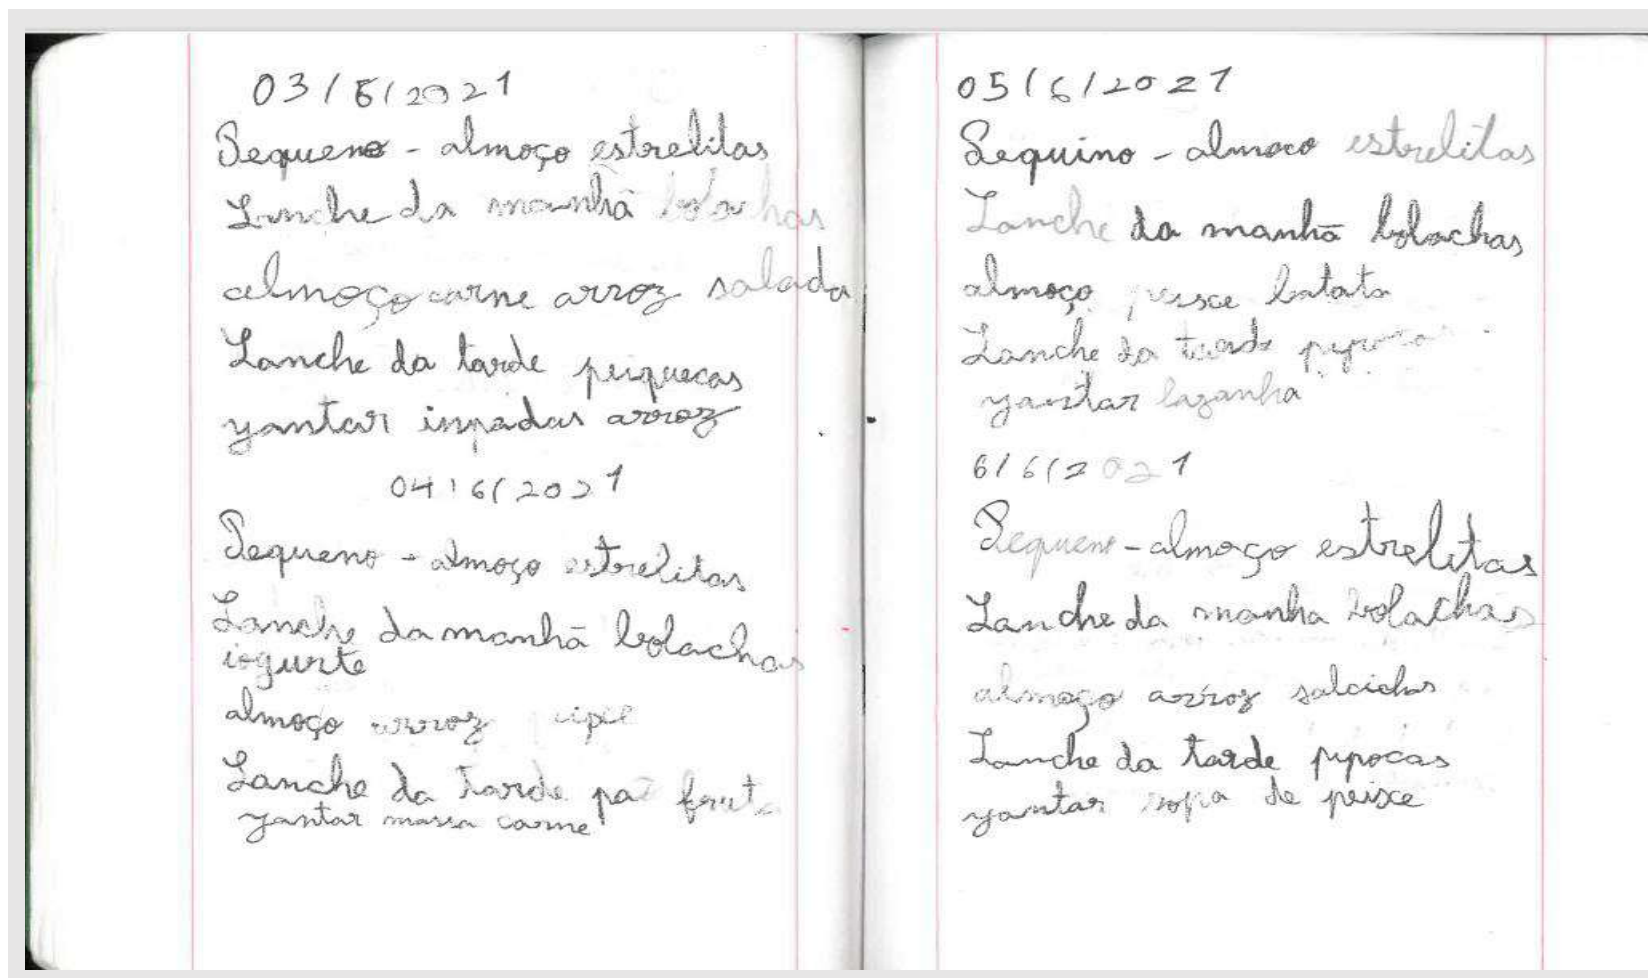 03/6/2021
Pequeno - almoço estrelitas
Lanche da manhã bolachas
almoço carne arroz salada
Lanche da tarde peiquecas
yantar inpadas arroz
04/6/2021
Pequeno - almoço estrelitas
Lanche da manhã bolachas
iogurte
almoço arroz
Lanche da tarde pão fruta
yantar massa carne
05/6/2021
Pequino - almoco estrelitas
Lanche da manhã bolachas
almoço peisce batata
Lanche da tarde pipocas
yantar lazanha
6/6/2021
Pequeno - almoço estrelitas
Lanche da manha bolachas
almoço arroz salcichas
Lanche da tarde pipocas
yantar sopa de peixe